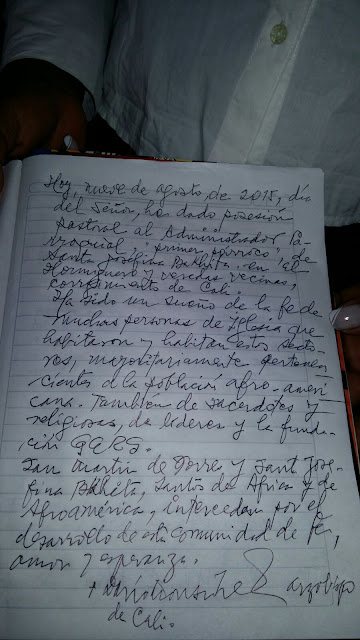 Hoy, nueve de agosto, de 2015, día
del Señor, he dado posesión
pastoral al Administrador Pa-
rroquial, "primer párroco", de
Santa Josefina Bakhita en "el
Hormiguero y veredas vecinas,
corregimiento de Cali.
Ha sido un sueño de la fe de
muchas personas de Iglesia que
habitaron y habitan estos secto-
res, mayoritariamente pertene-
cientes a la població afro-ameri-
cana. También de sacerdotes y
religiosas, de líderes y la funda-
ción
San Martín de Porres y Sant Jose-
fina Bakhita, Santos de Africa y de
Afroamérica, intercedan por el
desarrollo de esta comunidad de fe,
amor y esperanza.
+ arzobispo
de Cali.